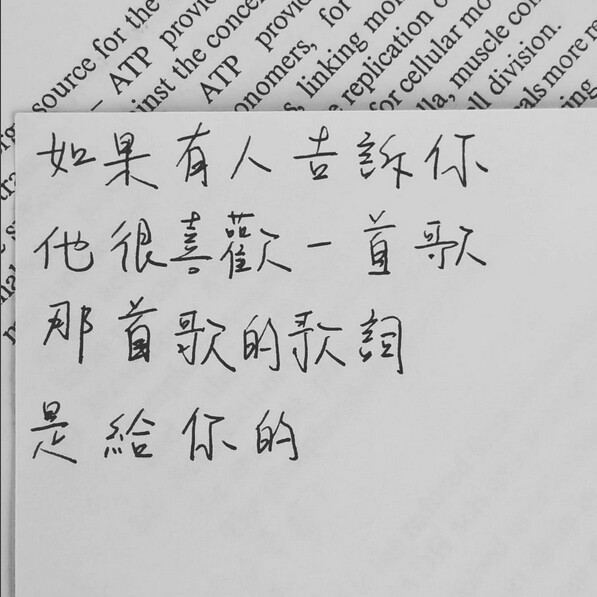 source for the
– ATP provid
inst the conce
ATP provid
onomers, for
, linking mo
e replication o
for cellular mo
la, muscle con
ll division.
als more re
如果有人告訴你
他很喜歡一首歌
那首歌的歌詞
是給你的